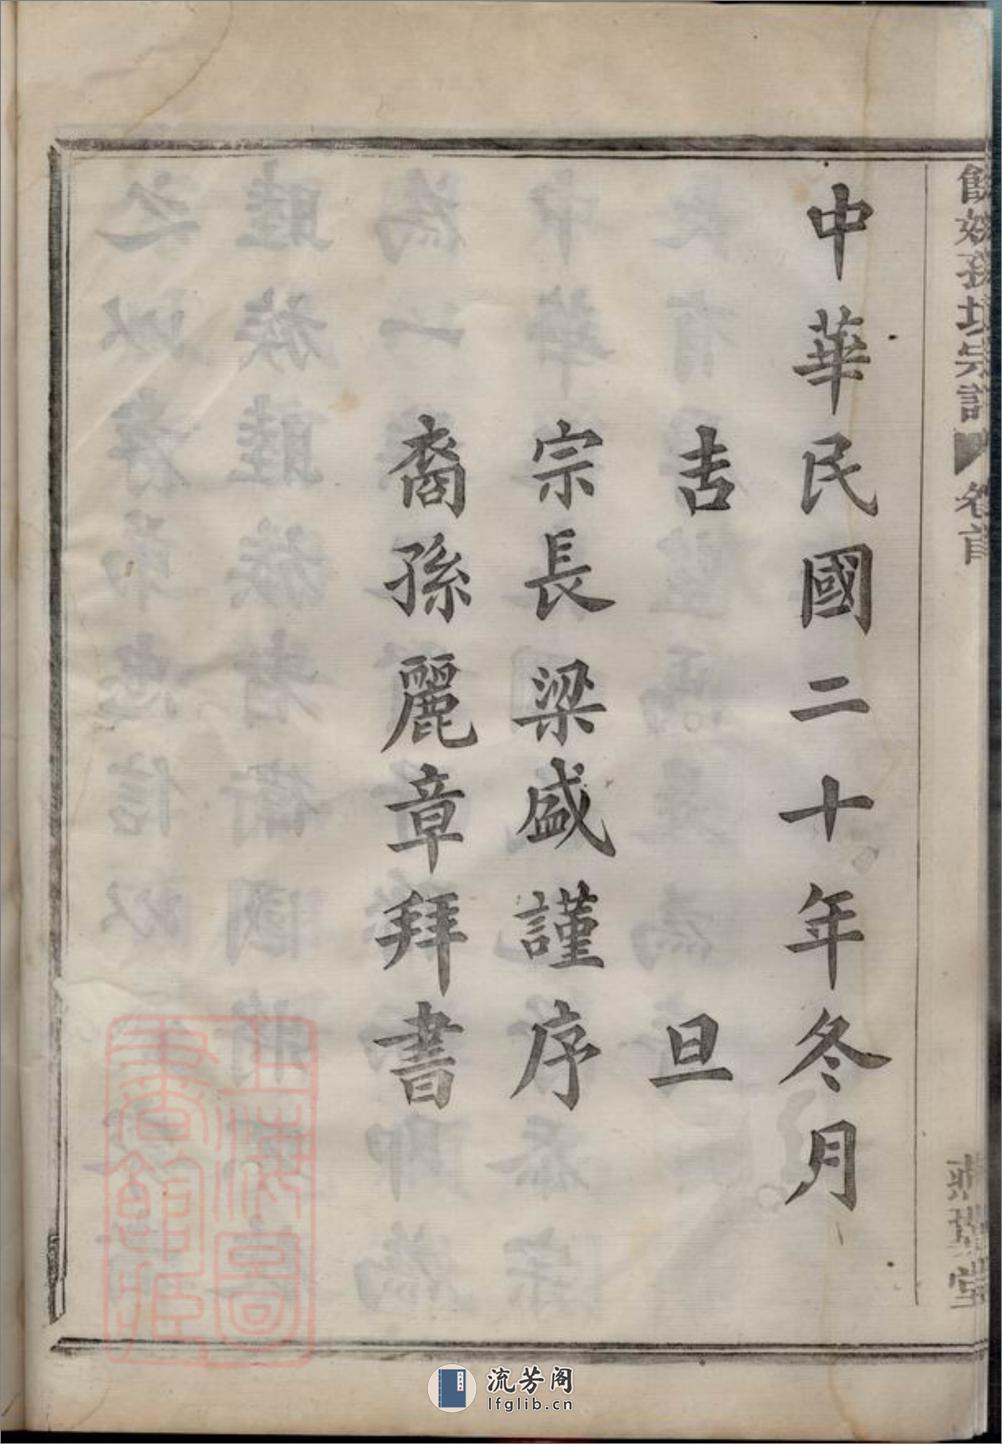 中華民國二十年冬月
吉旦
宗長梁盛謹序
裔孫麗章拜書
宗譜
卷首
堂
流芳阁
lfglib.cn